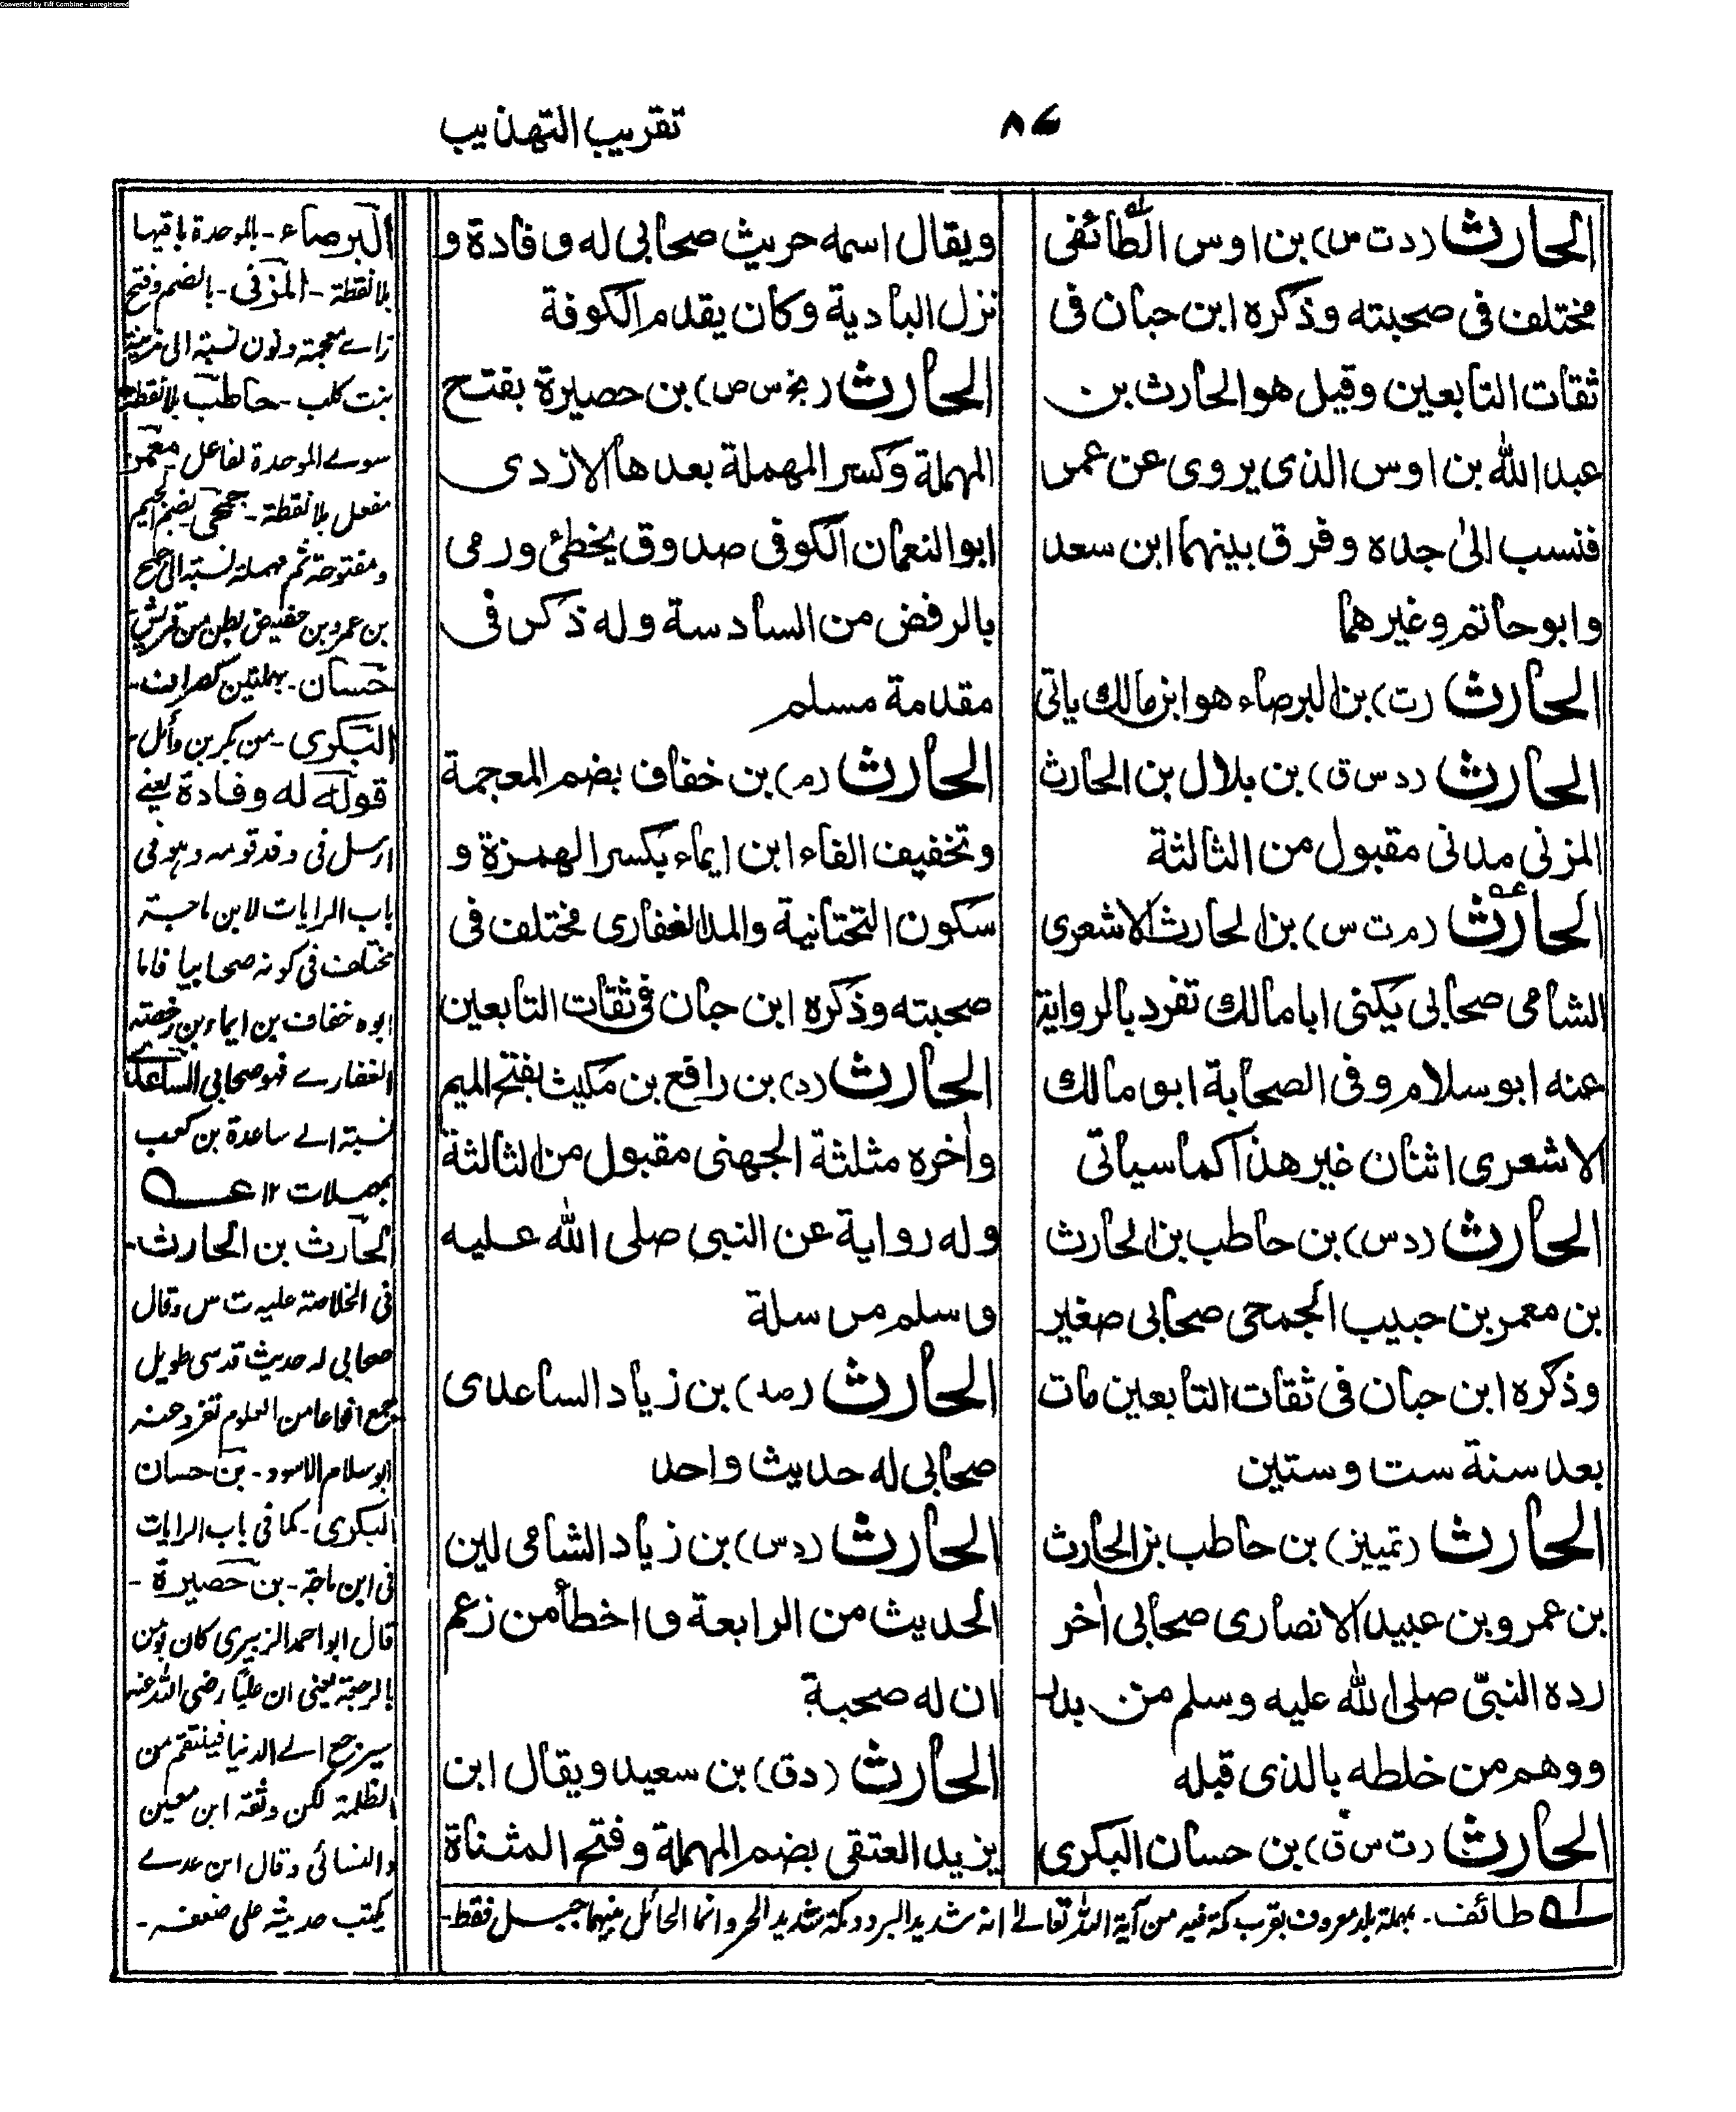 Converted by Tiff Combine - unregistered
٨٤ تقريب التهذيب
الحارث (د ت س) بن اوس الطائفى
مختلف فى صحبته وذكره ابن حبان فى
ثقات التابعين وقيل هو الحارث بن
عبد الله بن اوس الذى يروى عن عمر
فنسب الىٰ جده وفرق بينهما ابن سعد
وابو حاتم وغيرهما
الحارث (ت) بن البرصاء هو ابن مالك ياتى
الحارث (د س ق) بن بلال بن الحارث
المزنى مدنى مقبول من الثالثة
الحارث (م ت س) بن الحارث الاشعرى
الشامى صحابى يكنى ابا مالك تفرد بالرواية
عنه ابو سلام وفى الصحابة ابو مالك
الاشعرى اثنان غير هذا كما سياتى
الحارث (د س) بن حاطب بن الحارث
بن معمر بن حبيب الجمحى صحابى صغير
وذكره ابن حبان فى ثقات التابعين مات
بعد سنة ست وستين
الحارث (تمييز) بن حاطب بن الحارث
بن عمرو بن عبيد الانصارى صحابى اٰخر
رده النبىّ صلى الله عليه وسلم من بدر
ووهم من خلطه بالذى قبله
الحارث (ت س ق) بن حسان البكرى
ويقال اسمه حريث صحابى له وفادة و
نزل البادية وكان يقدم الكوفة
الحارث (بخ س ص) بن حصيرة بفتح
المهملة وكسر المهملة بعدها الازدى
ابو النعمان الكوفى صدوق يخطئ ورمى
بالرفض من السادسة وله ذكر فى
مقدمة مسلم
الحارث (م) بن خفاف بضم المعجمة
وتخفيف الفاء ابن ايماء بكسر الهمزة و
سكون التحتانية والمد الغفارى مختلف فى
صحبته وذكره ابن حبان فى ثقات التابعين
الحارث (د) بن رافع بن مكيث بفتح الميم
واٰخره مثلثة الجهنى مقبول من الثالثة
وله رواية عن النبى صلى الله عليه
وسلم مرسلة
الحارث (صد) بن زياد الساعدى
صحابى له حديث واحد
الحارث (د س) بن زياد الشامى لين
الحديث من الرابعة واخطأ من زعم
ان له صحبة
الحارث (د ق) بن سعيد ويقال ابن
يزيد العتقى بضم المهملة وفتح المثناة
البرصاء - بالموحدة باقيها
بلا نقطة - المزنى - بالضم وفتح
زاے معجمة ونون نسبة الى مزينة
بنت كلب - حاطب بلا نقطة
سوے الموحدة كفاعل - معمر
مفعل بلا نقطة - جمحى بضم الجيم
ومفتوحة ثم مهملة نسبة الى جمح
بن عمرو بن بطن من قريش
حسان - بمهملتين
البكرى - من بكر بن وائل -
قوله له وفادة يعنے
ارسل فى وفد قومه وهو فى
باب الرايات لابن ماجة
مختلف فى كونه صحابيا فاما
ابوه خفاف بن ايماء بن رخصة
الغفارے فهو صحابى الساعدى
نسبة الے ساعدة بن كعب
بمهملات ١٢ عه
الحارث بن الحارث -
فى الخلاصة عليه ت س وقال
صحابى له حديث قدسى طويل
جمع انواعا من العلوم تفرد عنه
ابو سلام الاسود - بن حسان
البكرى - كما فى باب الرايات
فى ابن ماجة - بن حصيرة -
قال ابو احمد الزبيرى كان يؤمن
بالرجعة يعنى ان عليا رضى الله عنه
سيرجع الے الدنيا فينتقم من
الظلمة لكن وثقه ابن معين
والنسائى وقال ابن عدے
يكتب حديثه على ضعفه -
له طائف - بمهملة بلد معروف بقرب مكة فيه من آية الله تعالےٰ انه شديد البرد ومكة شديد الحر وانما الحائل بينهما جبل فقط -